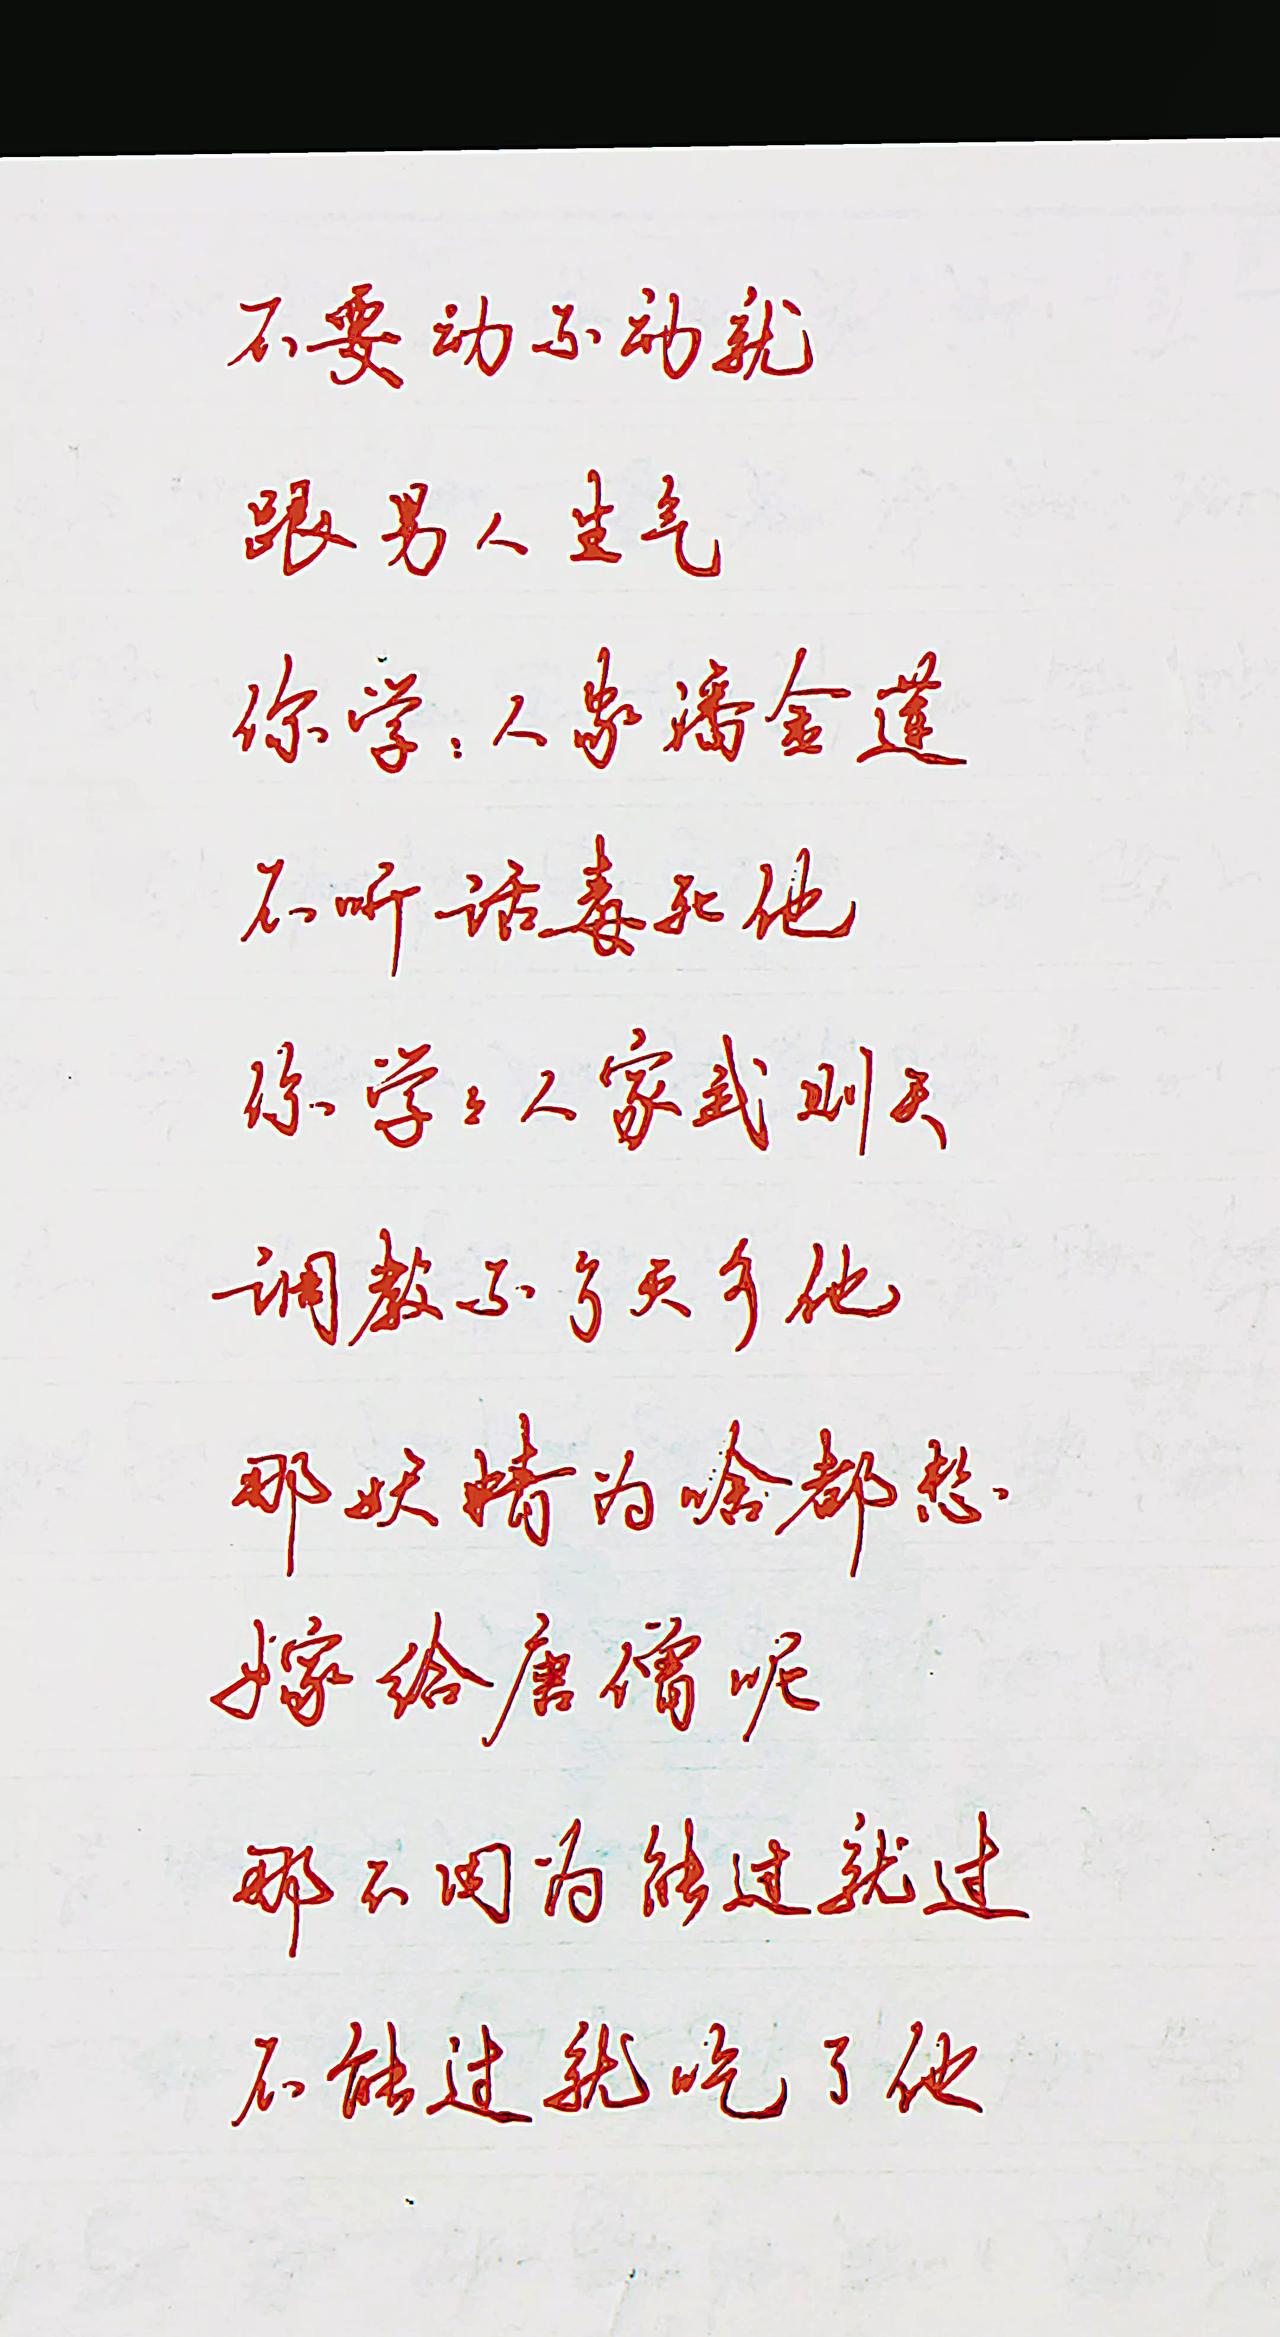 不要动不动就
跟男人生气
你学:人家潘金莲
不听话毒死他
你学々人家武则天
调教不了天多他
那妖精为啥都想
嫁给唐僧呢
那不因为能过就过
不能过就吃了他